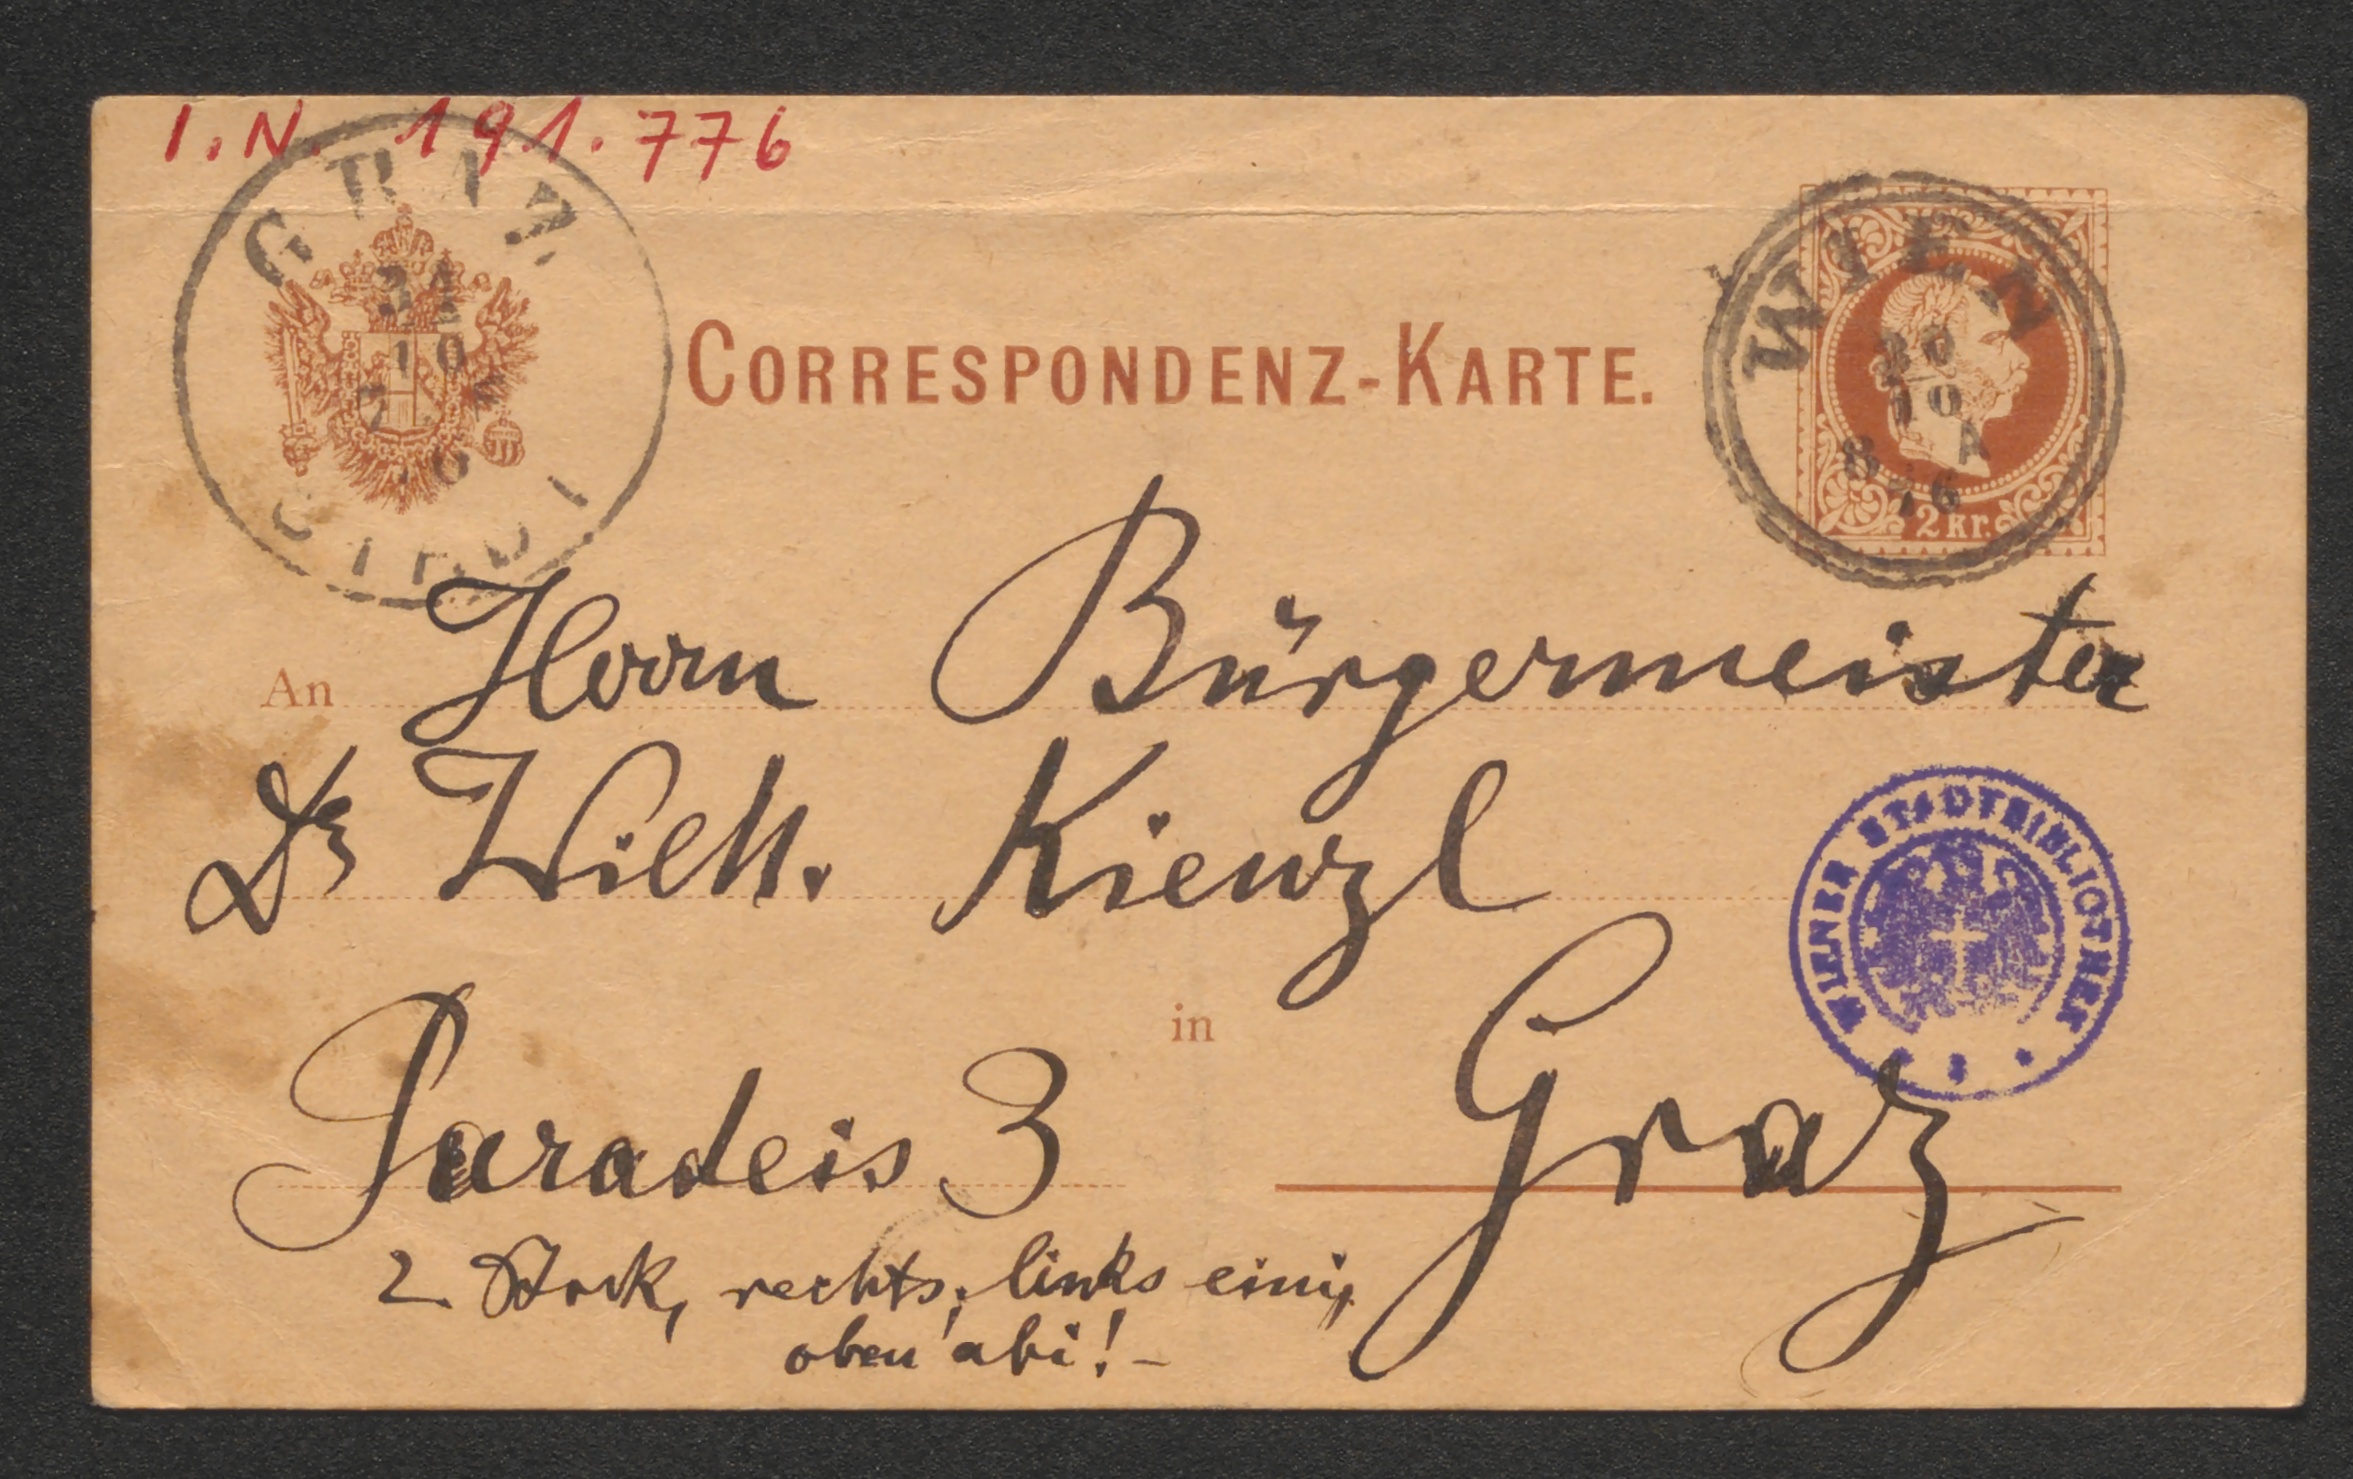 I.N. 191.776
GRAZ
31
10
7
76
STADT
CORRESPONDENZ-KARTE.
WIEN
30
10
A
8 76
2 kr.
An Herrn Bürgermeister
Dr Wilh. Kienzl
WIENER STADTBIBLIOTHEK
in
Paradeis 3 Graz
2. Stock, rechts, links eini,
oben abi! -